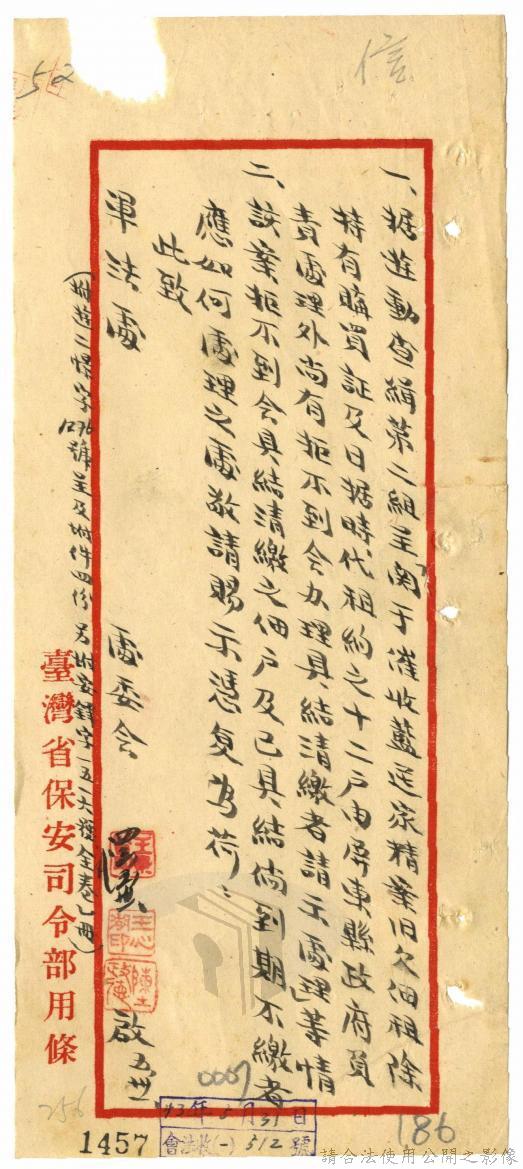 信
52
一、据遊動查緝第二組呈関于催收藍匪家精案旧欠佃租除
持有購買証及日据時代租約之十二戶由屏東縣政府負
責處理外尚有拒不到会办理具結清繳者請示處理」等情
二、該案拒不到会具結清繳之佃戶及已具結倘到期不繳者
應如何處理之處敬請賜示憑复為荷、
此致
軍法處
處委会
啟 五.卅一
(附遊二惺字1276號呈及附件四份 另附安鐸字一五一六號全卷乙冊)
臺灣省保安司令部用條
0007
43年5月31日
會法收(一)512號
256
1457
186
請合法使用公開之影像